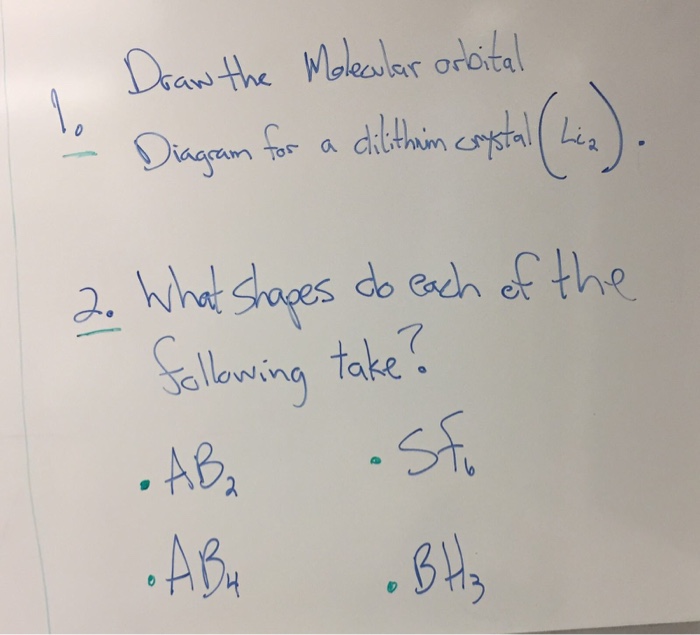 1. Draw the Molecular orbital
Diagram for a dilithium crystal (Li₂).
2. What shapes do each of the
following take?
• AB₂ • SF₆
• AB₄ • BH₃